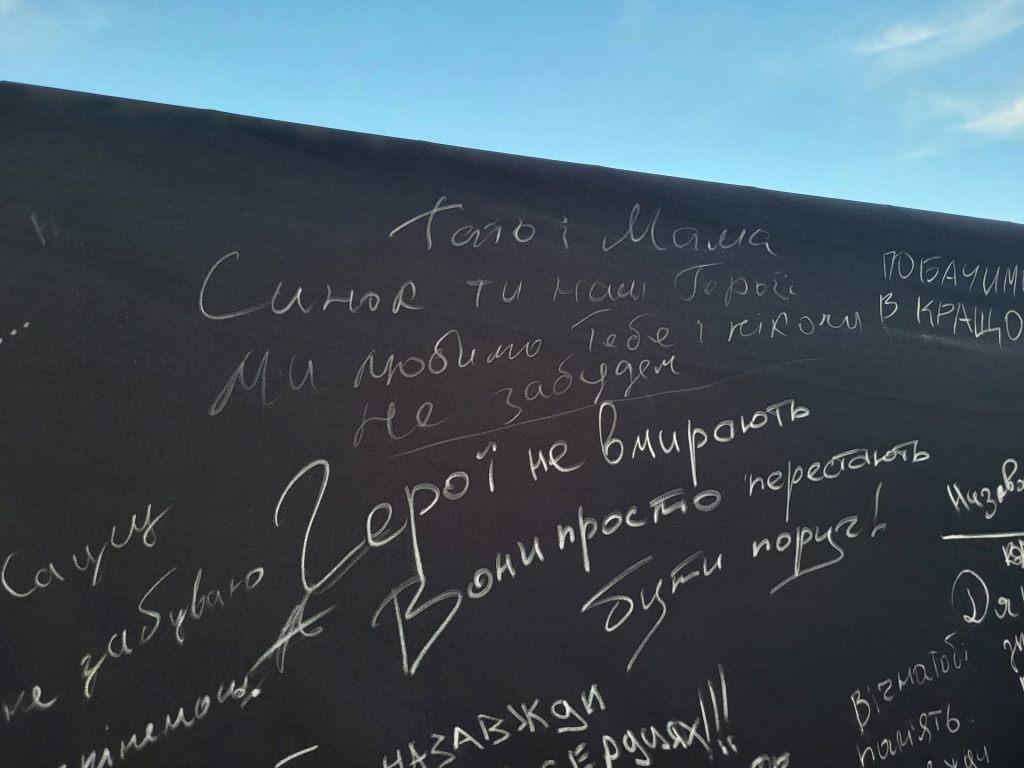 Тато і Мама
Синок ти наш Герой
Ми любимо Тебе і ніколи
не забудем
ПОБАЧИМО
В КРАЩО
Герої не вмирають
Вони просто перестають
бути поруч!
Сашу
не забуваю
НАЗАВЖДИ
СЕРЦЯХ!!!
Назавж
Дя
Вічна тобі
пам'ять